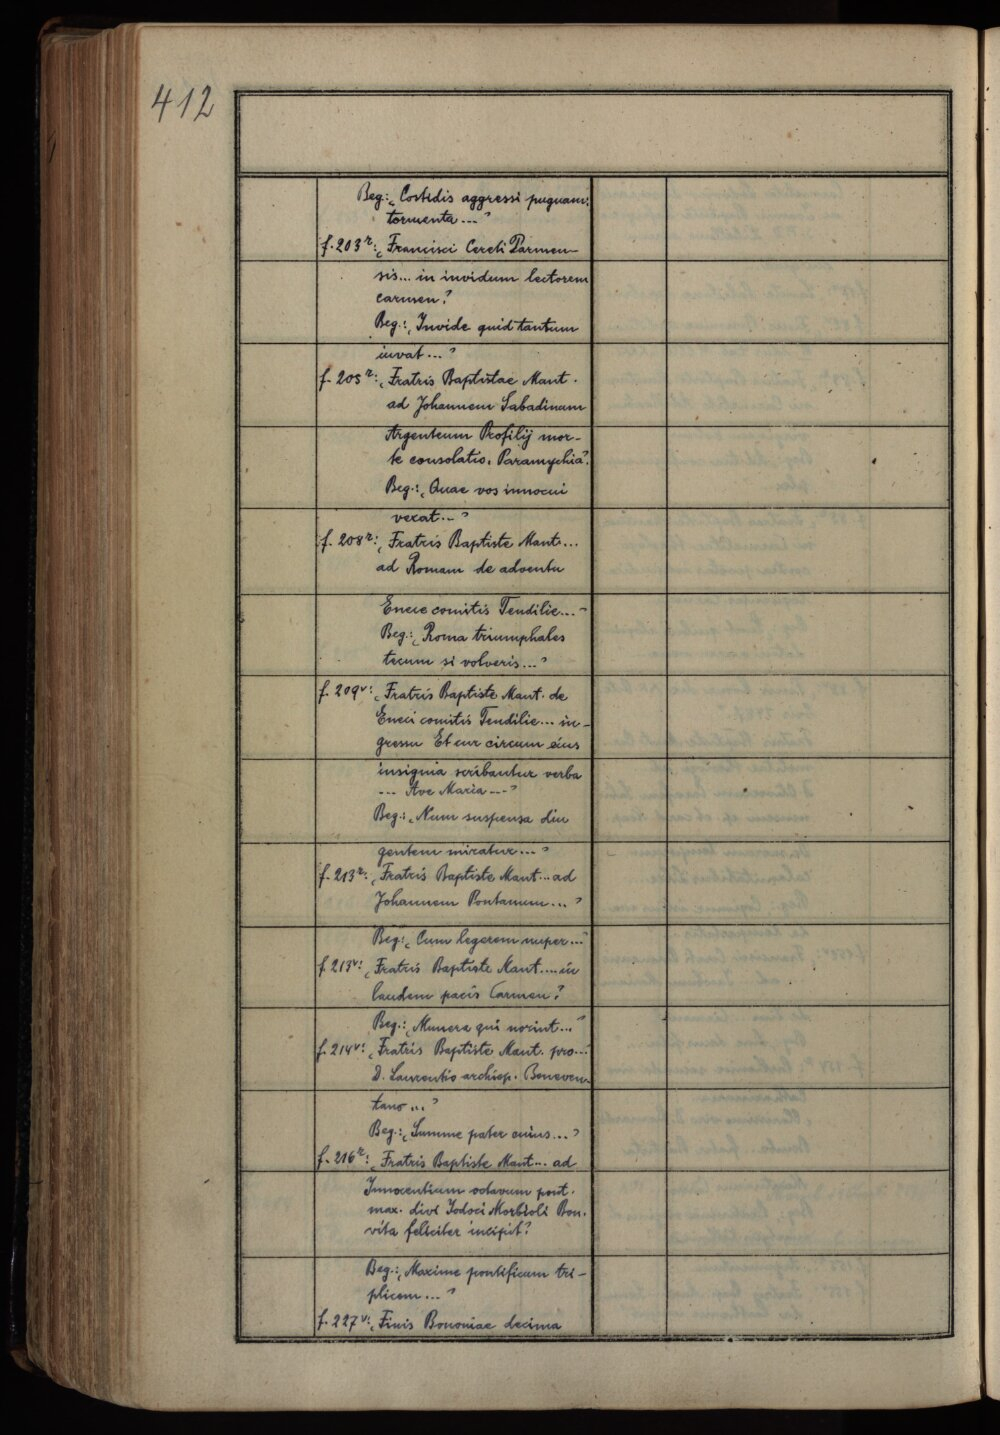 412
Beg.: „Costidis aggressi pugnam:
tormenta..."
f. 203r: „Francisci Cereti Parmen-
sis... in invidum lectorem
carmen".
Beg.: „Invide quid tantum
iuvat..."
f. 205r: „Fratris Baptistae Mant.
ad Johannem Sabadinum
Argenteum Profilij mor-
te consolatio. Paramythia".
Beg.: „Quae vos innocui
vexat..."
f. 208r: „Fratris Baptiste Mant...
ad Romam de adventu
Eneie comitis Tendilie..."
Beg.: „Roma triumphales
tecum si volveris..."
f. 209v: „Fratris Baptiste Mant. de
Eneci comitis Tendilie... in-
gressu Et cur circum eius
insignia scribantur verba
... Ave Maria..."
Beg.: „Num suspensa diu
gentem miratur..."
f. 213r: „Fratris Baptiste Mant... ad
Johannem Pontanum..."
Beg.: „Cum legerem nuper..."
f. 213v: „Fratris Baptiste Mant.... in
laudem pacis Carmen".
Beg.: „Munera qui norint..."
f. 214v: „Fratris Baptiste Mant. pro...
D. Laurentio archiep. Beneven-
tano..."
Beg.: „Summe pater cuius..."
f. 216r: „Fratris Baptiste Mant... ad
Innocentium octavum pont.
max. divi Iodoci Morbioli Bon.
vita feliciter incipit".
Beg.: „Maxime pontificum tri-
plicem..."
f. 227v: „Finis Bononiae decima